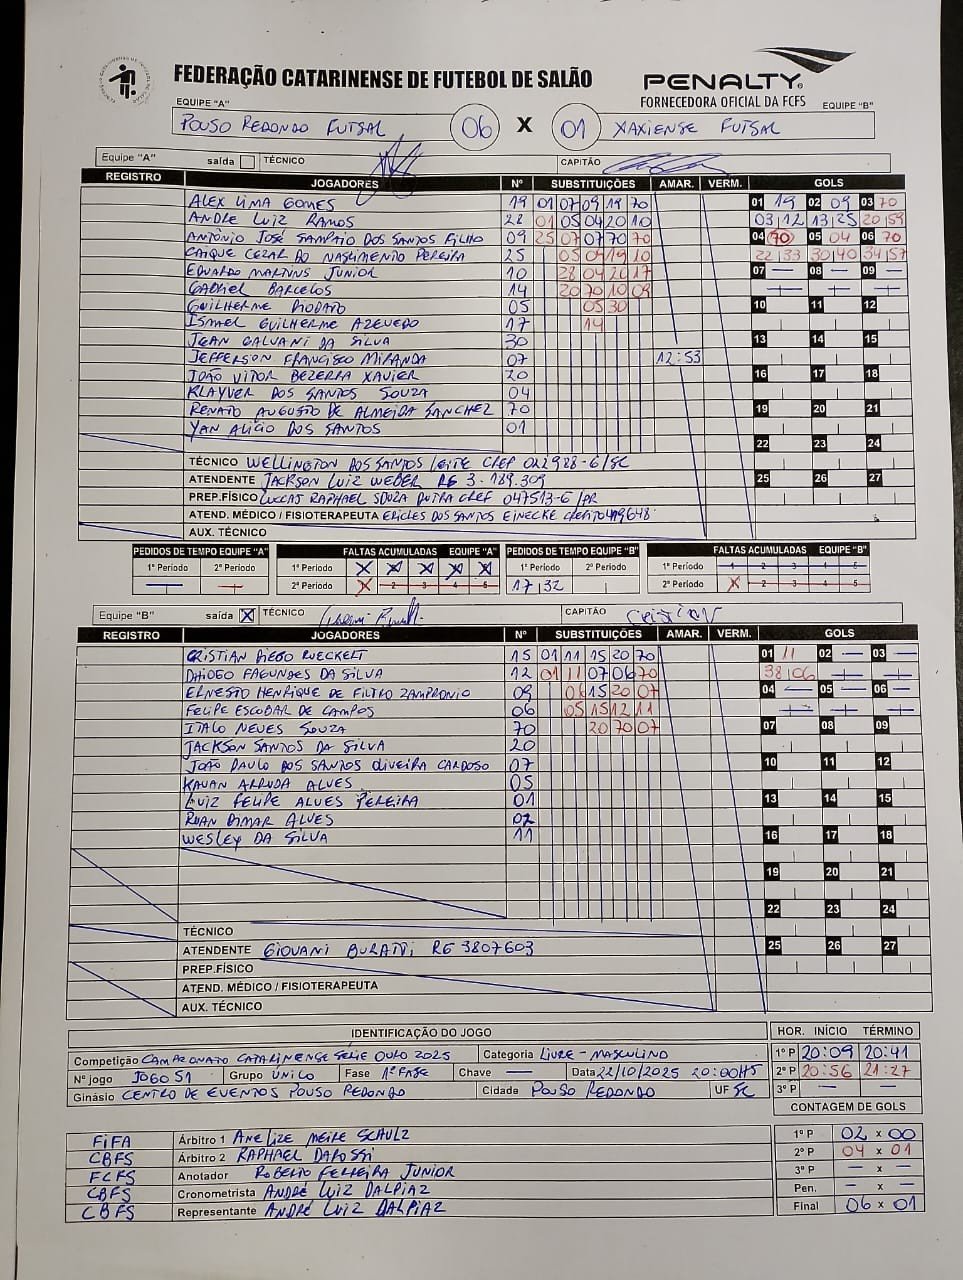 FEDERAÇÃO CATARINENSE DE FUTEBOL DE SALÃO
PENALTY
FORNECEDORA OFICIAL DA FCFS
EQUIPE "A" EQUIPE "B"
POUSO REDONDO FUTSAL 06 X 01 XAXIENSE FUTSAL
Equipe "A" saída TÉCNICO CAPITÃO
REGISTRO JOGADORES Nº SUBSTITUIÇÕES AMAR. VERM. GOLS
ALEX LIMA GOMES 19 01 07 09 19 70 01 19 02 09 03 70
ANDRE LUIZ RAMOS 28 01 05 04 20 10 03 12 13 25 20 59
ANTÔNIO JOSÉ SAMPAIO DOS SANTOS FILHO 09 25 07 07 70 70 04 70 05 04 06 70
CAIQUE CEZAR DO NASCIMENTO PEREIRA 25 05 09 19 10 22 33 30 40 34 57
EDUARDO MARTINS JUNIOR 10 28 04 20 17 07 — 08 — 09 —
GABRIEL BARCELOS 14 20 70 10 09
GUILHERME DIODATO 05 05 30 10 11 12
ISMAEL GUILHERME AZEVEDO 17 14
JEAN GALVANI DA SILVA 30 13 14 15
JEFFERSON FRANCISCO MIRANDA 07 12:53
JOÃO VITOR BEZERRA XAVIER 20 16 17 18
KLAYVER DOS SANTOS SOUZA 04
RENATO AUGUSTO DE ALMEIDA SANCHEZ 70 19 20 21
YAN ALICIO DOS SANTOS 01
22 23 24
TÉCNICO WELLINGTON DOS SANTOS LEITE CREF 022988-G/SC
ATENDENTE JACKSON LUIZ WEBER RG 3.189.309 25 26 27
PREP.FÍSICO LUCAS RAPHAEL SOUZA DUTRA CREF 047513-G/PR
ATEND. MÉDICO / FISIOTERAPEUTA ERICLES DOS SANTOS EINECKE
AUX. TÉCNICO
PEDIDOS DE TEMPO EQUIPE "A" FALTAS ACUMULADAS EQUIPE "A" PEDIDOS DE TEMPO EQUIPE "B" FALTAS ACUMULADAS EQUIPE "B"
1º Período 2º Período 1º Período X X X X X 1º Período 2º Período 1º Período 1 2 3 4 5
— — 2º Período X 2 3 4 5 17 32 2º Período X 2 3 4 5
Equipe "B" saída X TÉCNICO CAPITÃO
REGISTRO JOGADORES Nº SUBSTITUIÇÕES AMAR. VERM. GOLS
CRISTIAN DIEGO RUECKERT 15 01 11 15 20 70 01 11 02 — 03 —
DHIOGO FAGUNDES DA SILVA 12 01 11 07 06 70 38 06
ERNESTO HENRIQUE DE FILTRO ZAMPRONIO 09 06 15 20 07 04 — 05 — 06 —
FELIPE ESCOBAR DE CAMPOS 06 05 15 12 11
ITALO NEVES SOUZA 70 20 70 07 07 08 09
JACKSON SANTOS DA SILVA 20
JOÃO PAULO DOS SANTOS OLIVEIRA CARDOSO 07 10 11 12
KAUAN ARRUDA ALVES 05
LUIZ FELIPE ALVES PEREIRA 01 13 14 15
RUAN DIMAR ALVES 02
WESLEY DA SILVA 11 16 17 18
19 20 21
22 23 24
TÉCNICO
ATENDENTE GIOVANI BURATTI RG 3807603 25 26 27
PREP.FÍSICO
ATEND. MÉDICO / FISIOTERAPEUTA
AUX. TÉCNICO
IDENTIFICAÇÃO DO JOGO HOR. INÍCIO TÉRMINO
Competição CAMPEONATO CATARINENSE SÉRIE OURO 2025 Categoria LIVRE - MASCULINO 1º P 20:09 20:41
Nº jogo JOGO 51 Grupo ÚNICO Fase 1ª FASE Chave — Data 22/10/2025 20:00HS 2º P 20:56 21:27
Ginásio CENTRO DE EVENTOS POUSO REDONDO Cidade POUSO REDONDO UF SC 3º P — —
CONTAGEM DE GOLS
FIFA Árbitro 1 ANELIZE MEIRE SCHULZ 1º P 02 x 00
CBFS Árbitro 2 RAPHAEL DAROSSI 2º P 04 x 01
FCFS Anotador ROBERTO FERREIRA JUNIOR 3º P — x —
CBFS Cronometrista ANDRÉ LUIZ DALPIAZ Pen. — x —
CBFS Representante ANDRÉ LUIZ DALPIAZ Final 06 x 01